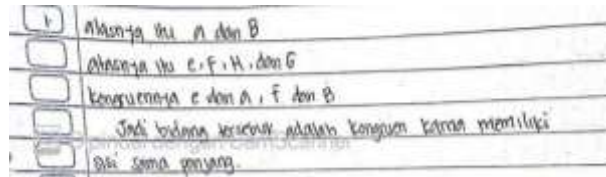 1) alasnya itu A dan B
atasnya itu e, F, H, dan G
kongruennya e dan A, F dan B
Jadi bidang tersebut adalah kongruen karna memiliki
sisi sama panjang.